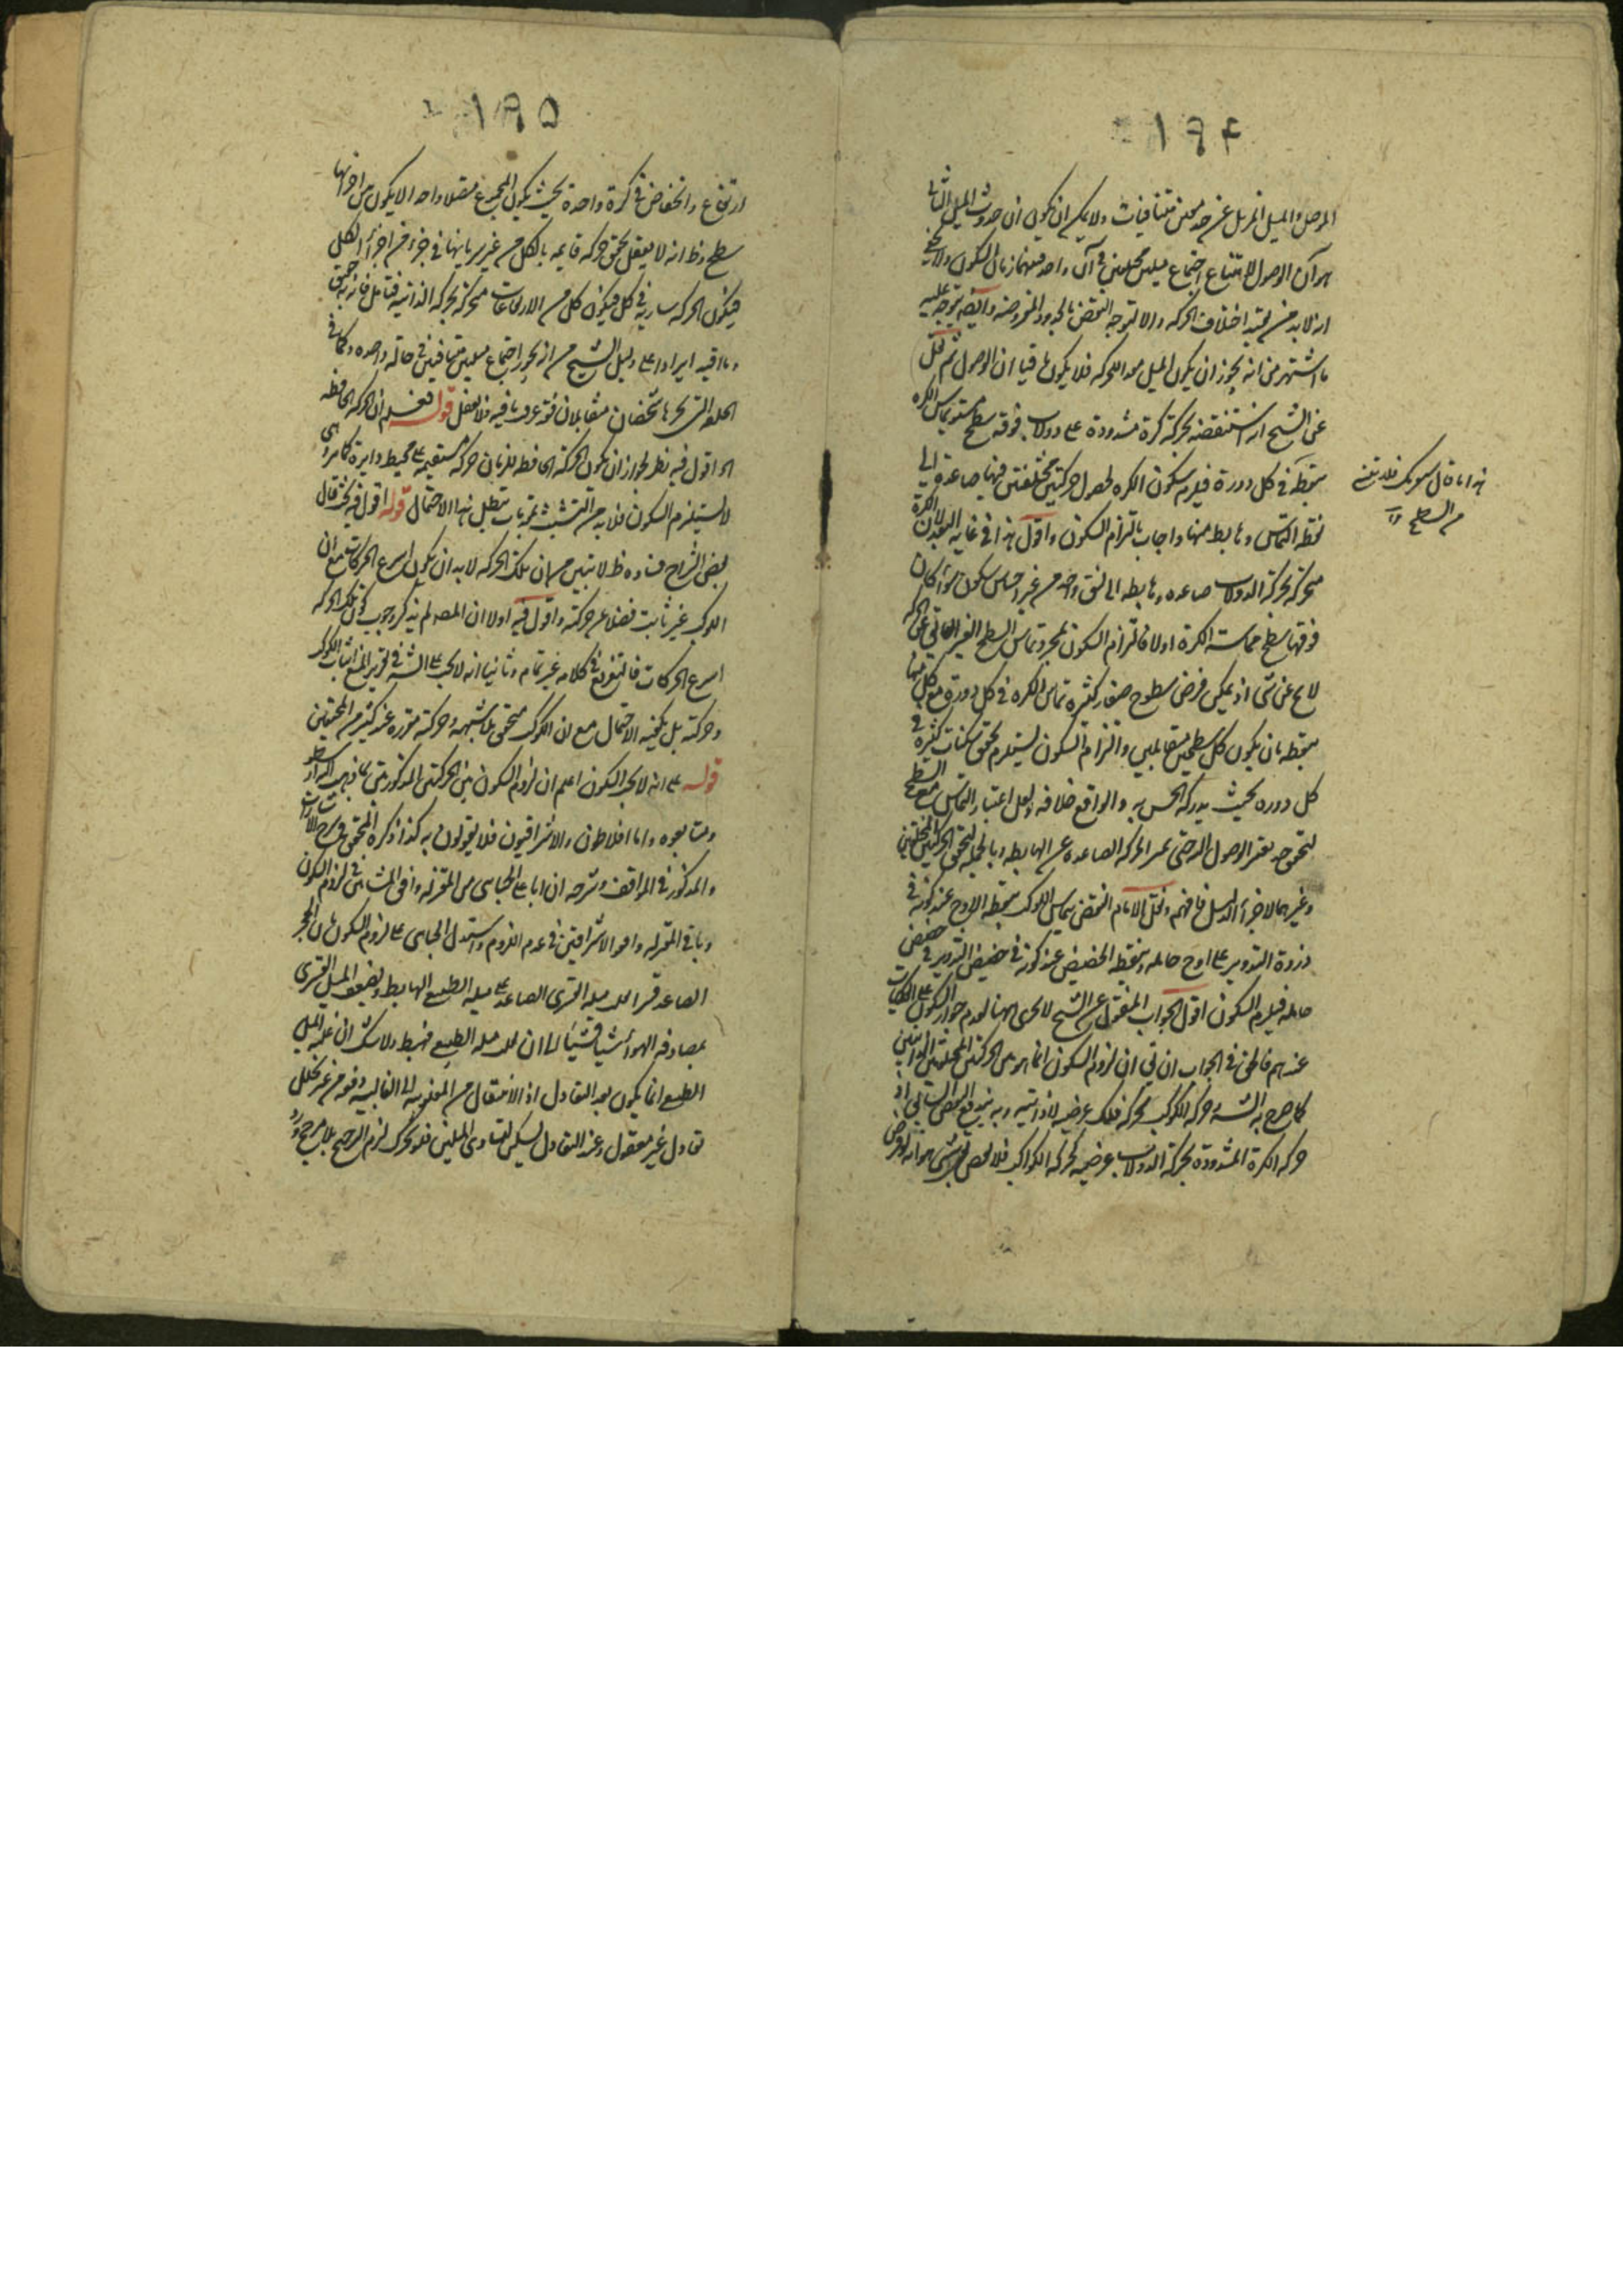 الموصل والميل المزيل عن حد معين متنافيان ولا يمكن ان يكون ان حدوث الميل الثاني
هو آن الوصول لامتناع اجتماع ميلين مختلفين في آن واحد فبينهما زمان السكون ولا يخفى
انه لابد من تقييد اختلاف الحركة والا لتوجه النقض بالحدود المفروضة وايضا يتوجه عليه
ما اشتهر من انه يجوز ان يكون الميل معد اللحركة فلا يكون باقيا ان الوصول ثم نقل
عن الشيخ انه استنقضه بحركة كرة مشدودة على دولاب فوقه سطح مستو يماس الكره
بنقطة في كل دورة فيلزم سكون الكره لحصول حركتين مختلفتين فيها صاعدة الى
نقطة التماس وهابط منها واجاب بالتزام السكون واقول هذا في غاية البعد لان الكرة
متحركة بحركة الدولاب صاعده وهابطه الى نسق واحد من غير احساس سكون سواء كان
فوقها سطح مماسة الكرة اولا فالتزام السكون بمجرد تماس السطح الغير العايق عن الحركه
لا يخ عن شي اذ يمكن فرض سطوح صغار كثيرة تماس الكره في كل دورة مع كل منها
بنقطه بان يكون كل سطحين متقابلين والتزام السكون يستلزم تحقق سكنات كثيرة في
كل دوره بحيث يدركه الحس به والواقع خلافه ولعل اعتبار التماس مع السطح
لتحقق حد يعتبر الوصول اليه حتى تميز الحركه الصاعدة عن الهابطه وبالجملة لتحقق الحركتين المختلفتين
وغيرهما لاجراء الدليل فافهم ونقل الامام النقض بتماس الكوكب بنقطه الاوج عند كونه في
ذروة التدوير على اوج حامله وبنقطه الحضيض عند كونه في حضيض التدوير في حضيض
حامله فيلزم السكون اقول الجواب المنقول عن الشيخ لا يجرى ههنا لعدم جواز السكون على الفلكيات
عندهم فالحق في الجواب ان يقي ان لزوم السكون انما هو في الحركتين المختلفتين الذاتيتين
كما صرح به الش وحركة الكوكب بحركة فلك عرضيه لا ذاتيه وبه يندفع النقض السابق اذ
حركه الكرة المشدودة بحركة الدولاب عرضيه كحركه الكواكب
هذا ما قال
من السطح
ارتفاع وانخفاض في كرة واحدة بحيث يكون المجموع متصلا واحدا لا يكون بين اجزائها
سطح وظ انه لا يعقل تحقق حركه قايمه بالكل من غير سريانها في جزء من اجزاء الكل
فيكون الحركه ساريه في كل فيكون كل من الارتفاعات متحركة بحركه الذاتيه فتامل فانه به حقيق
وما قيد ايرادا على دليل الشيخ من انه يجوز اجتماع ميلين متنافيين في حاله واحده وكما في
الحلقه التي يجرها شخصان متقابلان فقد عرف ما فيه فلا تغفل قوله فعلم ان الحركه الحافظه
اه اقول فيه نظر لجواز ان يكون الحركة الحافظ للزمان حركه مستقيمه على محيط دايرة كما مر هى
لا يستلزم السكون فلا بد من التشبث بمقدمات تبطل هذا الاحتمال قوله اقول فيه بحث قال
بعض الشراح فساده ظ لا تبين من ان تلك الحركه لا بد ان يكون اسرع الحركات مع ان
الكوكب غير ثابت فضلا عن حركته واقول فيه اولا ان المصه لم يذكر وجوب كون تلك الحركه
اسرع الحركات فالتفريع في كلامه غير تمام وثانيا انه لا يجب على الش في تقرير المنع اثبات الكوكب
وحركته بل يكفيه الاحتمال مع ان الكوكب متحقق بلا شبهه وحركته مقرره عند كثير من المحققين
قوله على انه لا يجب السكون اعلم ان لزوم السكون بين الحركتين المذكورتين مما ذهب اليه ارسطو
ومتابعوه واما افلاطون والاشراقيون فلا يقولون به كذا ذكره المحقق في شرح الاشارات
والمذكور في المواقف وشرحه ان ابا على الجبائى من المعتزله وافق المشائين في لزوم السكون
وباقي المعتزله وافقوا الاشراقيين في عدم اللزوم واستدل الجبائى على لزوم السكون بان الحجر
الصاعد قسرا يغلب ميله القسرى الصاعد على ميله الطبيعي الهابط ويضعف الميل القسرى
بمصادفه الهواء شيئا فشيئا الى ان يغلب ميله الطبيعي فيهبط ولا شك ان غلبه الميل
الطبيعي انما يكون بعد التعادل اذ الانتقال من المغلوبيه الى الغالبيه دفعه من غير تخلل
تعادل غير معقول وعند التعادل يسكن لتساوى الميلين فلو تحرك لزم الترجيح بلا مرجح